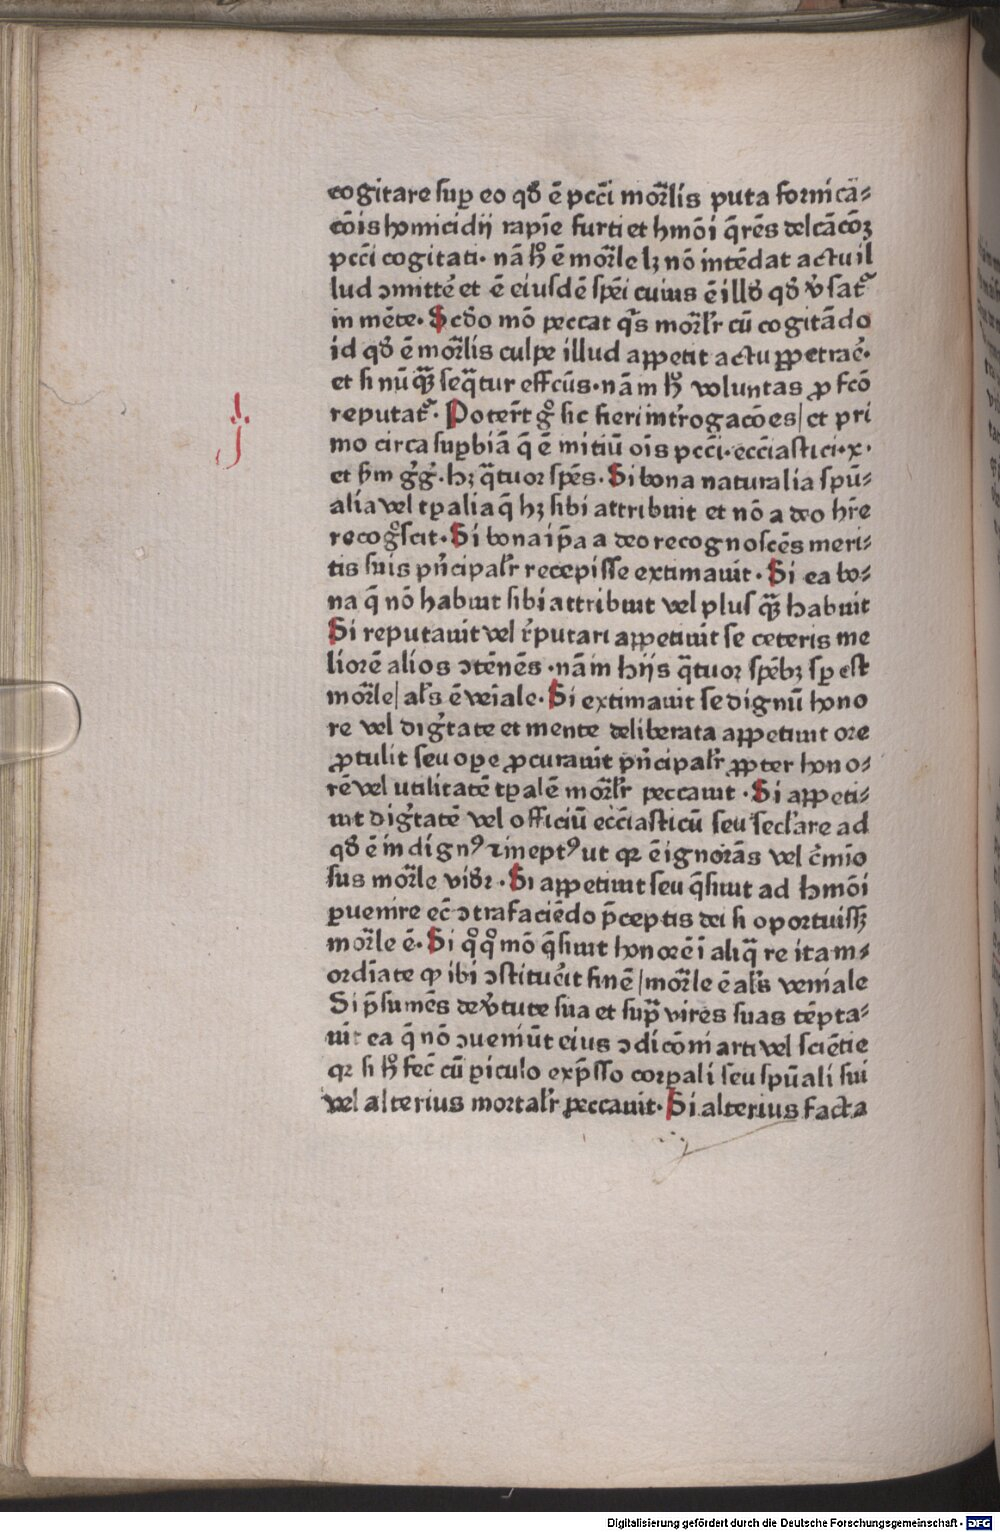 cogitare suꝑ eo qď ē pcc̄i mor̄lis puta fornicā⸗
cōis homicidij rapīe furti et hmōi q̄rēs delcācōꝫ
pcc̄i cogitati· nā hͦ ē mor̄le lꝫ nō intēdat actu il
lud ↄmittē et ē eiusdē spēi cuius ē illď qď v̓sat᷑
in mēte· Scďo mō peccat q̓s mor̄lr̄ cū cogitādo
id qď ē mor̄lis culpe illud appetit actu ꝑpetrac̄·
et si nūqꝫ̄ seq̄tur eff̄cūs· nām hͦ voluntas ꝓ fc̄ō
reputat᷑· Poter̄t gͦ sic fieri int̓rogacōes/ et pri
I
mo circa suꝑbiā q̄ ē initiū oīs pcc̄i· ecc̄iastici· x·
et ẜm gͥgͥ· hꝫ q̄tuor spēs· Si bona naturalia spū⸗
alia vel tꝑalia q̄ hꝫ sibi attribuit et nō a deo hr̄e
recogͦscit· Si bona ip̄a a deo recognoscēs meri⸗
tis suis pn̄cipalr̄ recepisse extimauit· Si ea bo⸗
na q̄ nō habuit sibi attribuit vel plus qꝫ̄ habuit
Si reputauit vel r̓putari appetiuit se ceteris me
liorē alios ↄtēnēs· nām hijs q̄tuor spēbꝫ sꝑ est
mor̄le/ al̄s ē veīale· Si extimauit se dignū hono
re vel digͥtate et mente deliberata appetiuit ore
ꝓtulit seu oꝑe ꝓcurauit pn̄cipalr̄ ꝓpter hono⸗
rē vel utilitatē tꝑalē mor̄lr̄ peccauit· Si appeti⸗
uit digͥtatē vel officiū ecc̄iasticū seu secl̄are ad
qď ē indignꝰ ⁊ ineptꝰ ut qꝛ ē ignorās vel c̓mīo
sus mor̄le vidꝛ̄· Si appetiuit seu q̄siuit ad hmōi
ꝑuenire ec̄ ↄtrafaciēdo p̄ceptis dei si oportuissꝫ
mor̄le ē· Si qͦqͦ mō q̄siuit honorē ī aliq̄ re ita in⸗
ordīate ꝙ ibi ↄstituc̓it finē/ mor̄le ē al̄s veniale
Si p̄sumēs de v̓tute sua et sup̄ vires suas tēpta⸗
uit ea q̄ nō ↄueniūt eius ↄdicōni arti vel sciētie
qꝛ si hͦ fec̄ cū ꝑiculo exp̄sso corpali seu spūali sui
vel alterius mortalr̄ peccauit· Si alterius facta
Digitalisierung gefördert durch die Deutsche Forschungsgemeinschaft - DFG